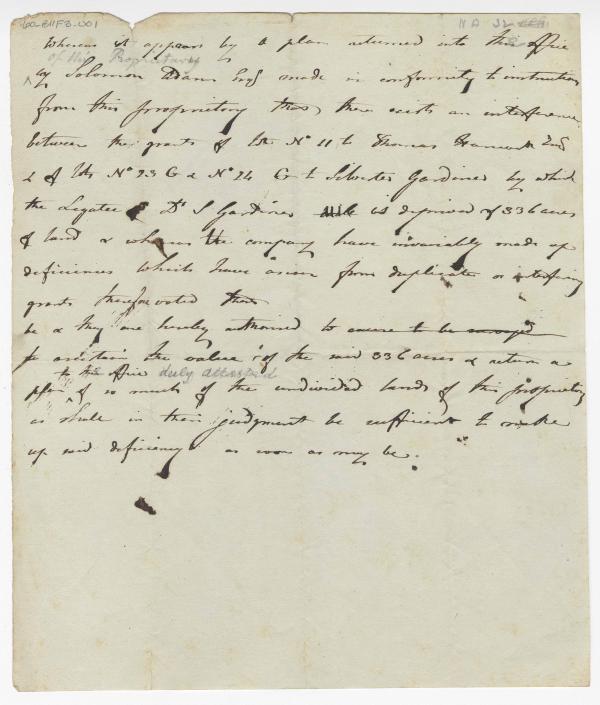 60-B11F3-001
Whereas it appears by a plan returned into this office
of this Proprietary
by Solomon Adams Esq made in conformity to instructions
from this propropriety that there exists an interference
between the grants of lot No 11 to Thomas Hancock Esq
& of lots No 23 & No 24 to Silvester Gardiner by which
the Legatee of Dr S Gardiner is deprived of 336 acres
of land & whereas the company have invariably made up
deficiences which have arisen from duplicate or interfering
grants therefore voted that
be & they are hereby authorised to cause to be surveyed
to ascertain the value of the said 336 acres & return a
to this office duly attested
plan of so much of the undivided lands of this propriety
as shall in their judgment be sufficient to make
up said deficiency as soon as may be.